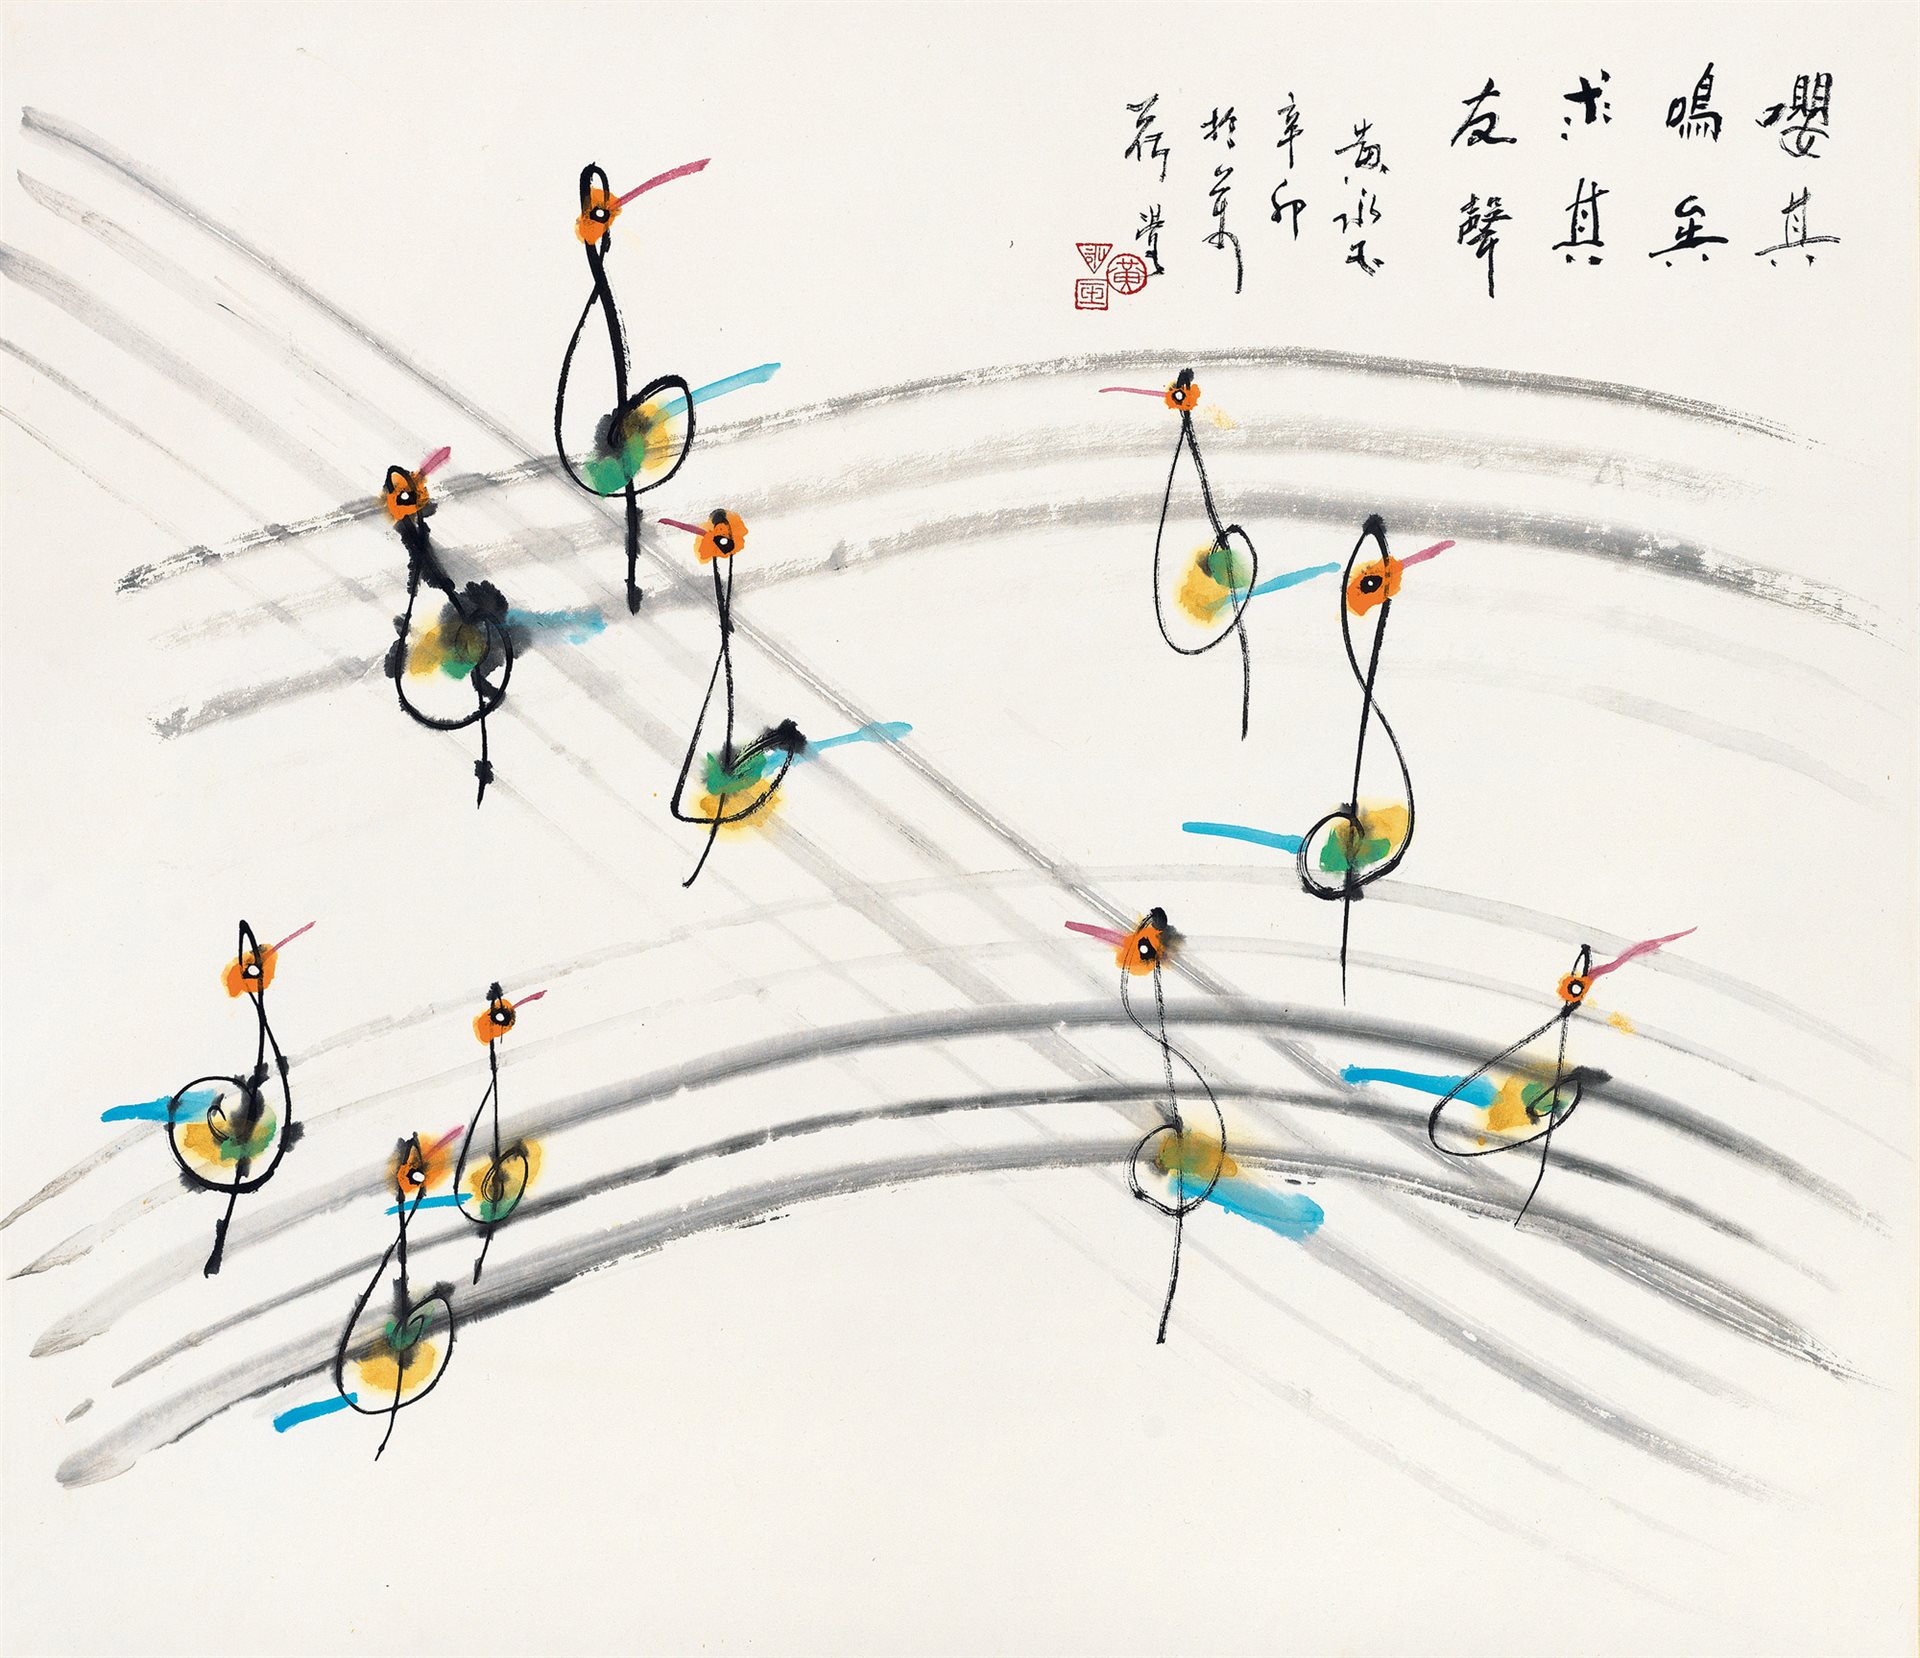 嚶其
鳴矣
求其
友聲
黃永玉
辛卯
於萬
荷堂
黃
永
玉